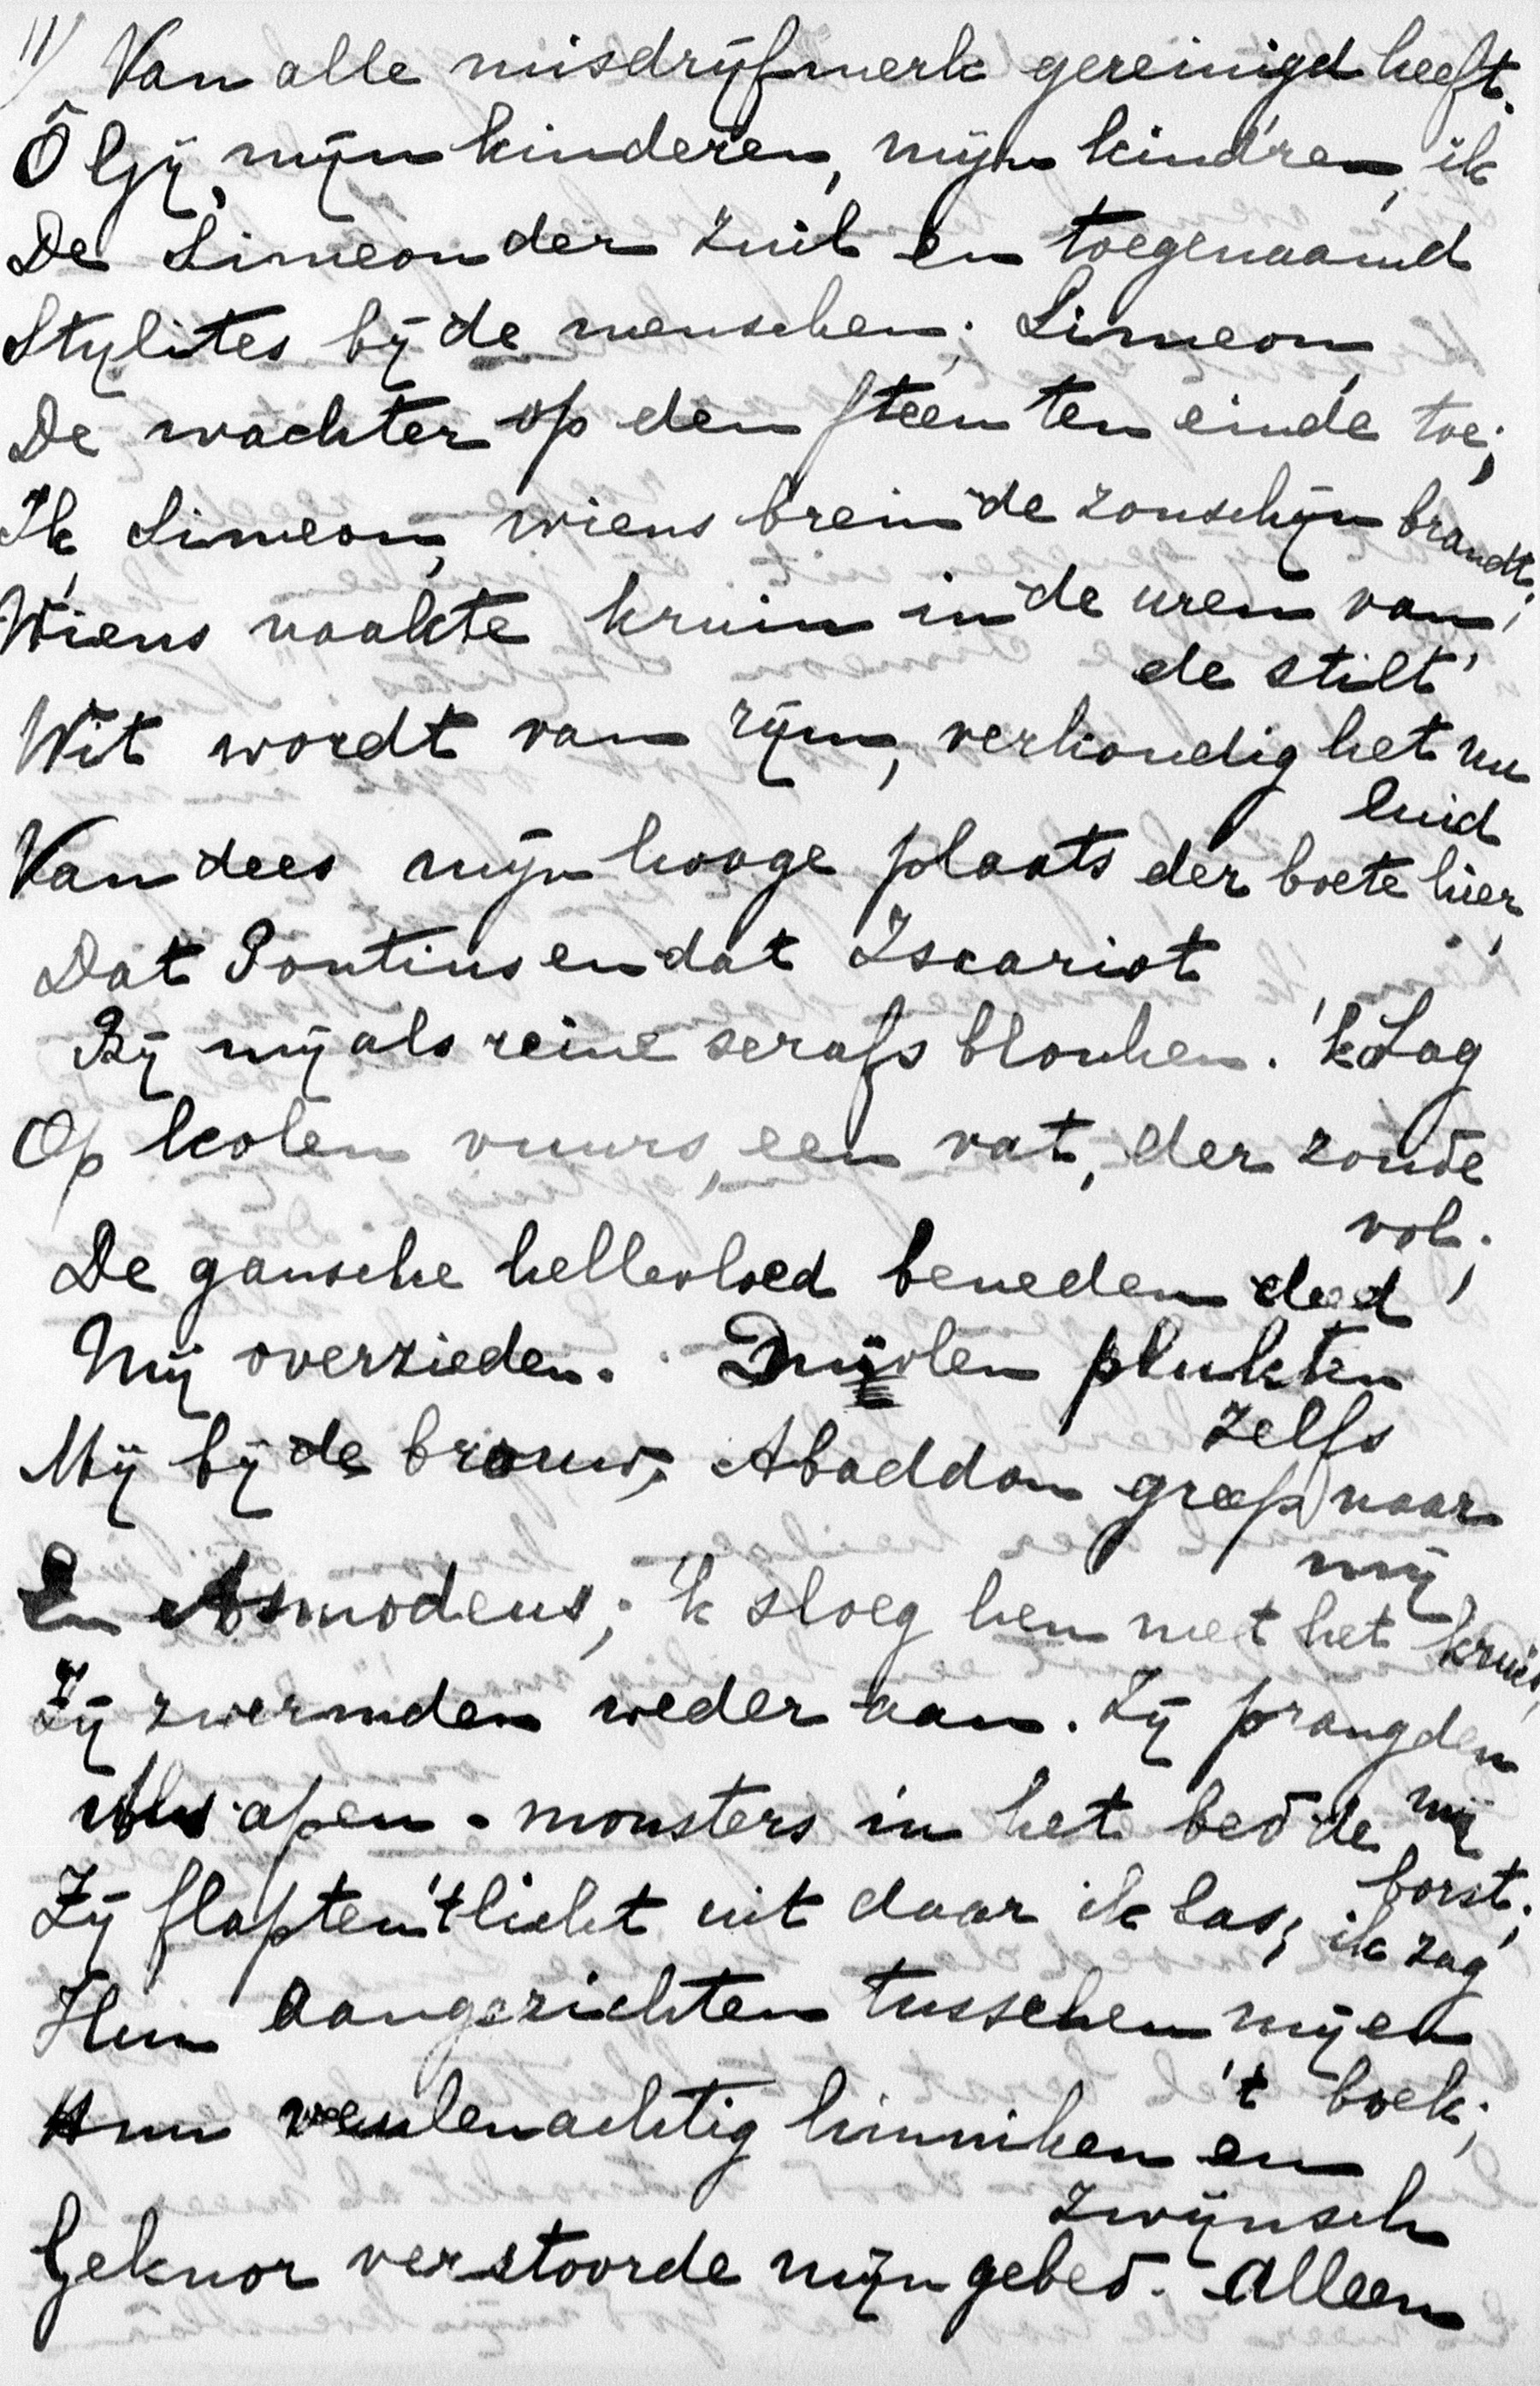 11) Van alle misdrijfmerk gereinigd heeft.
Ô Gij, mijn kinderen, mijn kind'ren, ik
De Simeon der zuil en toegenaamd
Stylites bij de menschen; Simeon,
De wachter op den steen ten einde toe;
Ik, Simeon, wiens brein de zonschijn brandt;
Wiens naakte kruin in de uren van
de stilt'
Wit wordt van rijm, verkondig het nu
luid
Van dees mijn hooge plaats der boete hier,
Dat Pontius en dat Iscariot
Bij mij als reine serafs blonken. 'k Lag
Op kolen vuurs, een vat, der zonde
vol;
De gansche hellevloed beneden deed
Mij overzieden. Duivlen plukten
Mij bij de brouw; Abaddon greep zelfs naar
mij
En Asmodeus; 'k sloeg hen met het kruis,
Zij zwermden weder aan. Zij prangden
Als apen-monsters in het bed de mij
borst;
Zij flapten 't licht uit daar ik las; ik zag
Hun aangezichten tusschen mij en
't boek;
Hun veulenachtig hinniken en
zwijnsch
Geknor verstoorde mijn gebed. Alleen